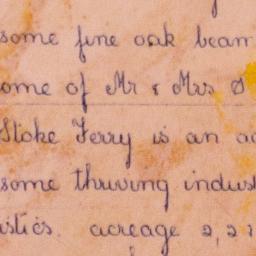 some fine oak beam
ome of Mr & Mrs
Stoke Ferry is an
some thriving indust
istics. acreage 2,2